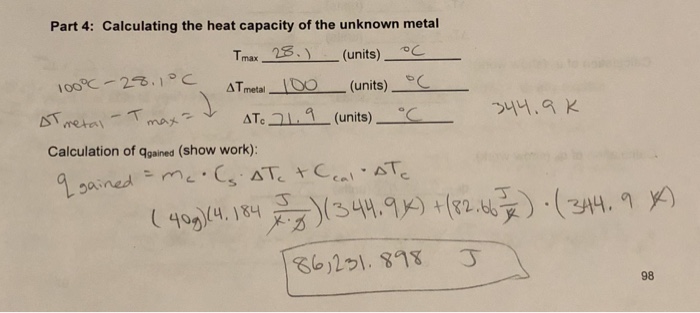 Part 4: Calculating the heat capacity of the unknown metal
Tmax 28.1 (units) °C
100°C - 28.1°C ΔTmetal 100 (units) °C
ΔTmetal - Tmax = ↓ ΔTc 71.9 (units) °C 344.9 K
Calculation of qgained (show work):
qgained = mc · Cs · ΔTc + Ccal · ΔTc
(40g)(4.184 J/K·g)(344.9K) + (82.66 J/K) · (344.9 K)
86,231.898 J
98